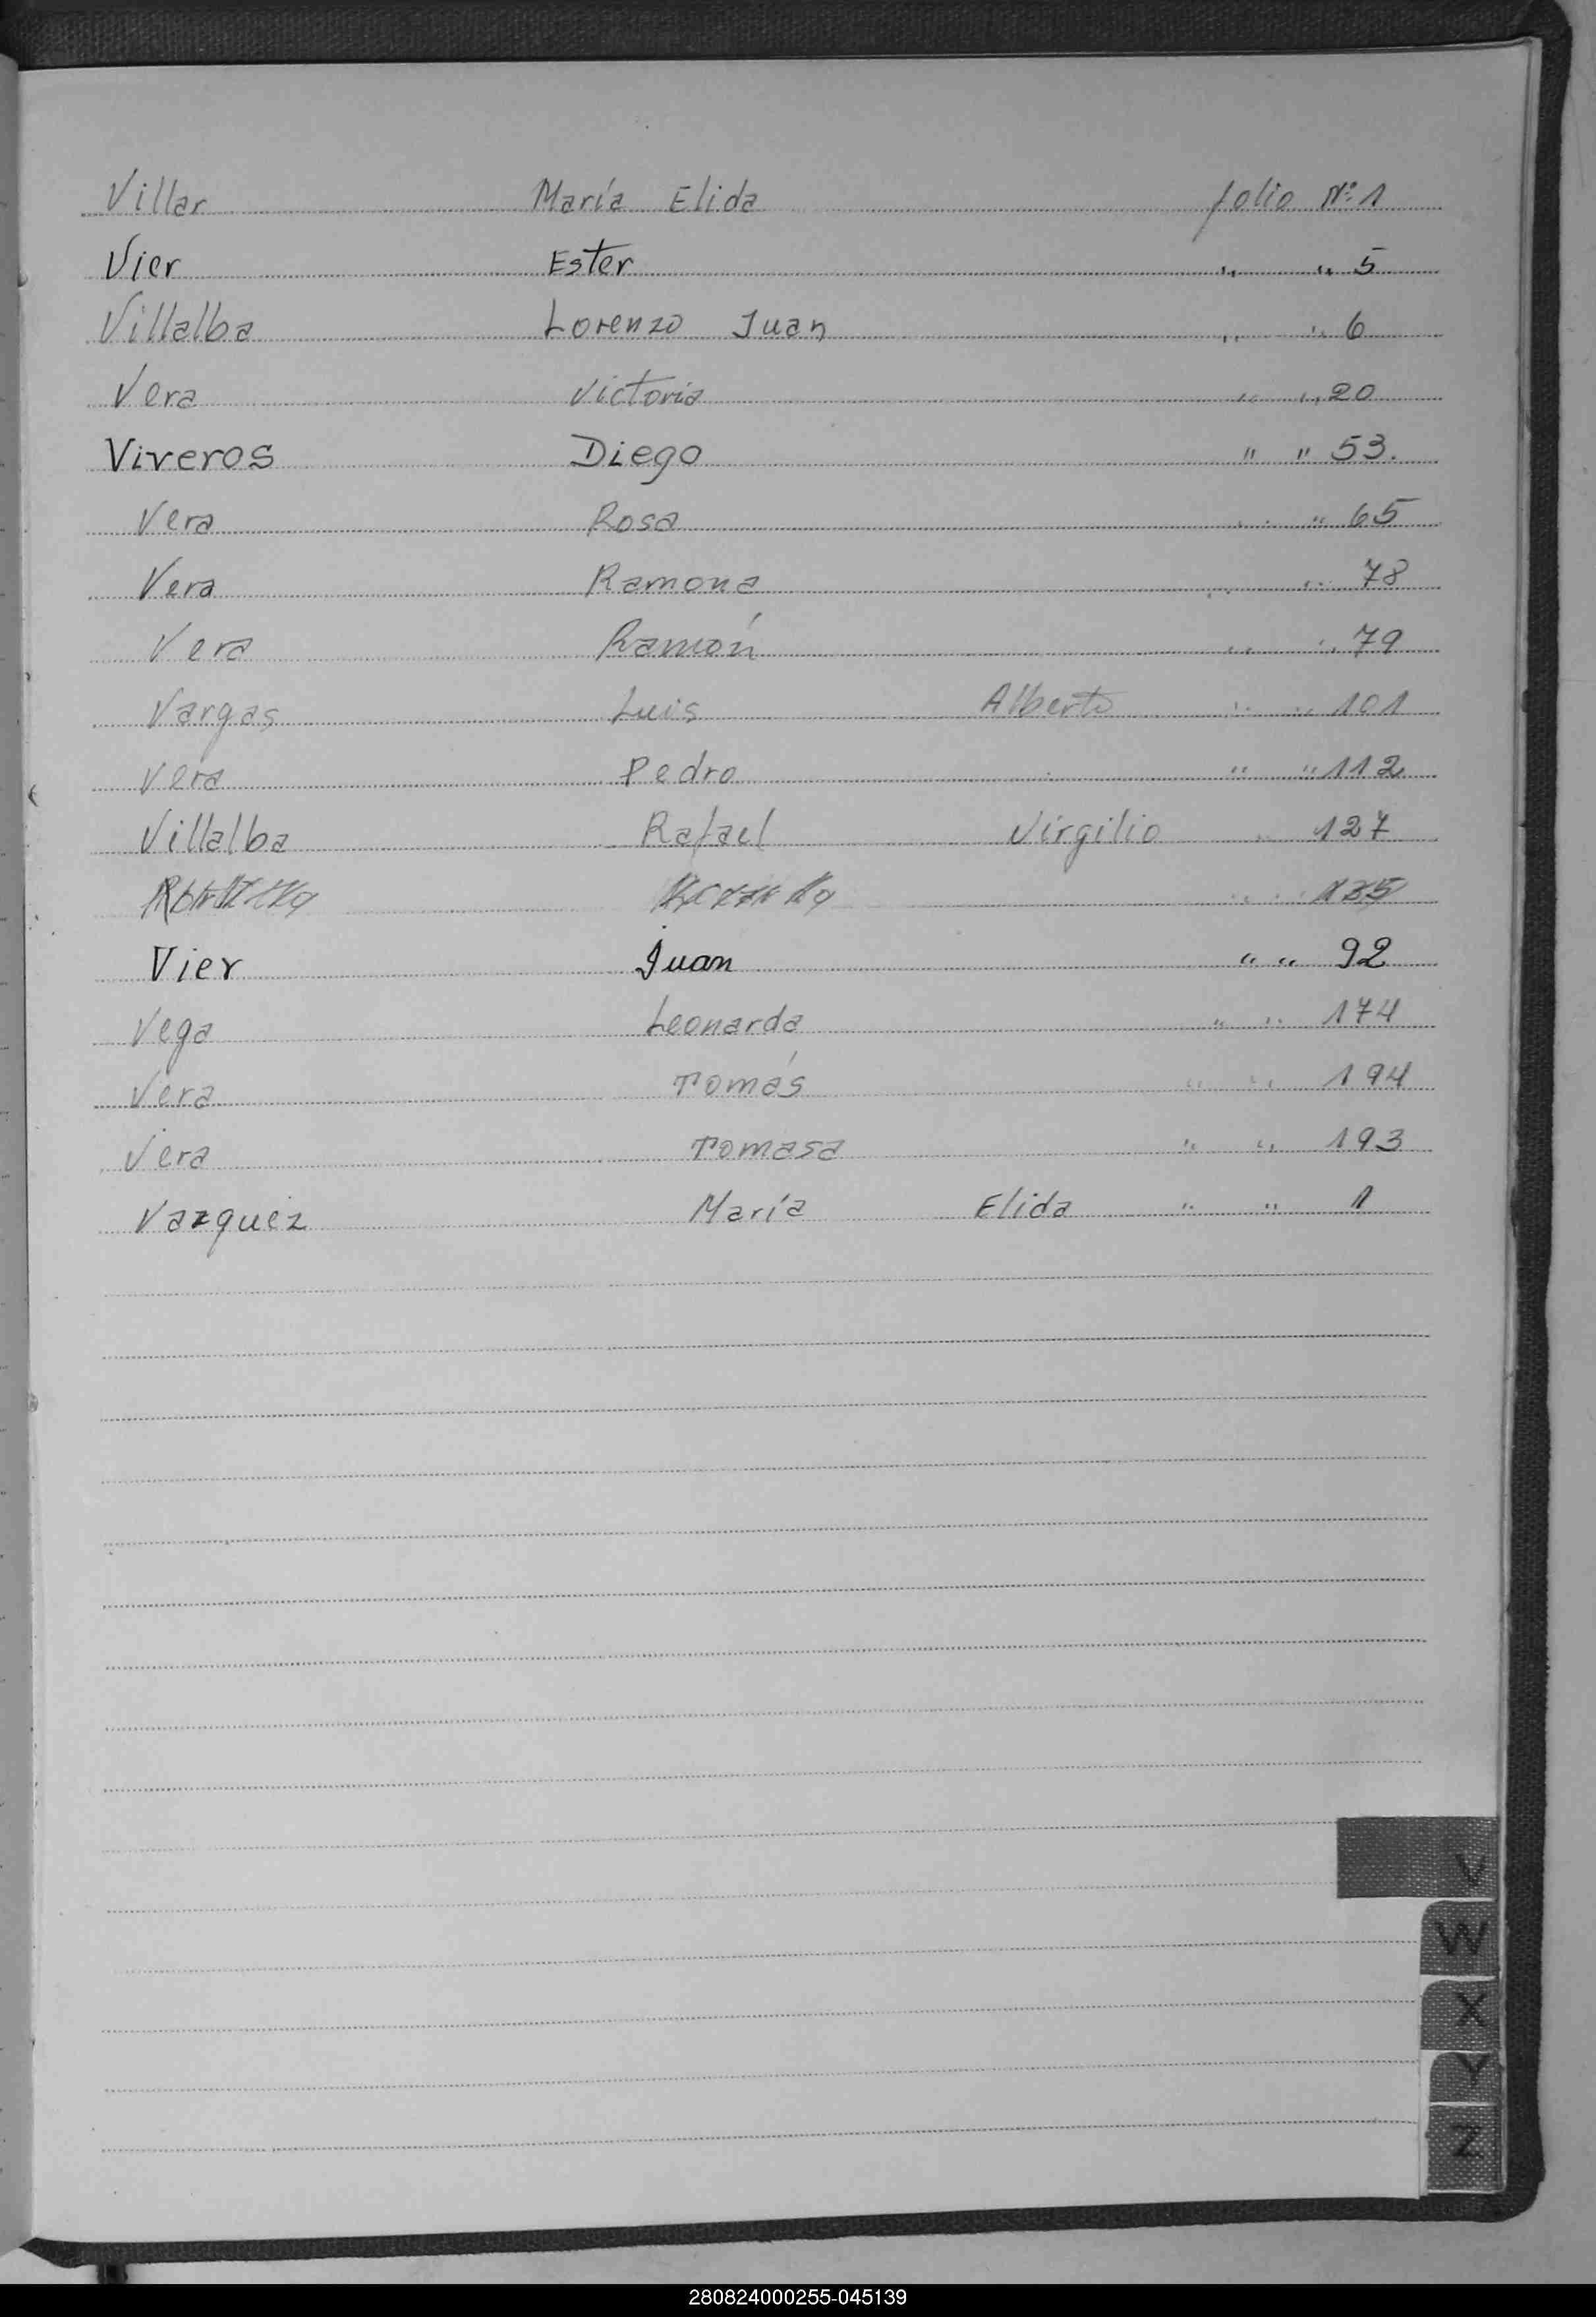 Villar María Elida folio Nº 1
Vier Ester " " 5
Villalba Lorenzo Juan " " 6
Vera Victoria " " 20
Viveros Diego " " 53.
Vera Rosa " " 65
Vera Ramona " " 78
Vera Ramón " " 79
Vargas Luis Alberto " " 101
Vera Pedro " " 112
Villalba Rafael Virgilio " 127
" "
Vier Juan " " 92
Vega Leonarda " " 174
Vera Tomás " " 194
Vera Tomasa " " 193
Vazquez María Elida " " 1
V
W
X
Y
Z
280824000255-045139